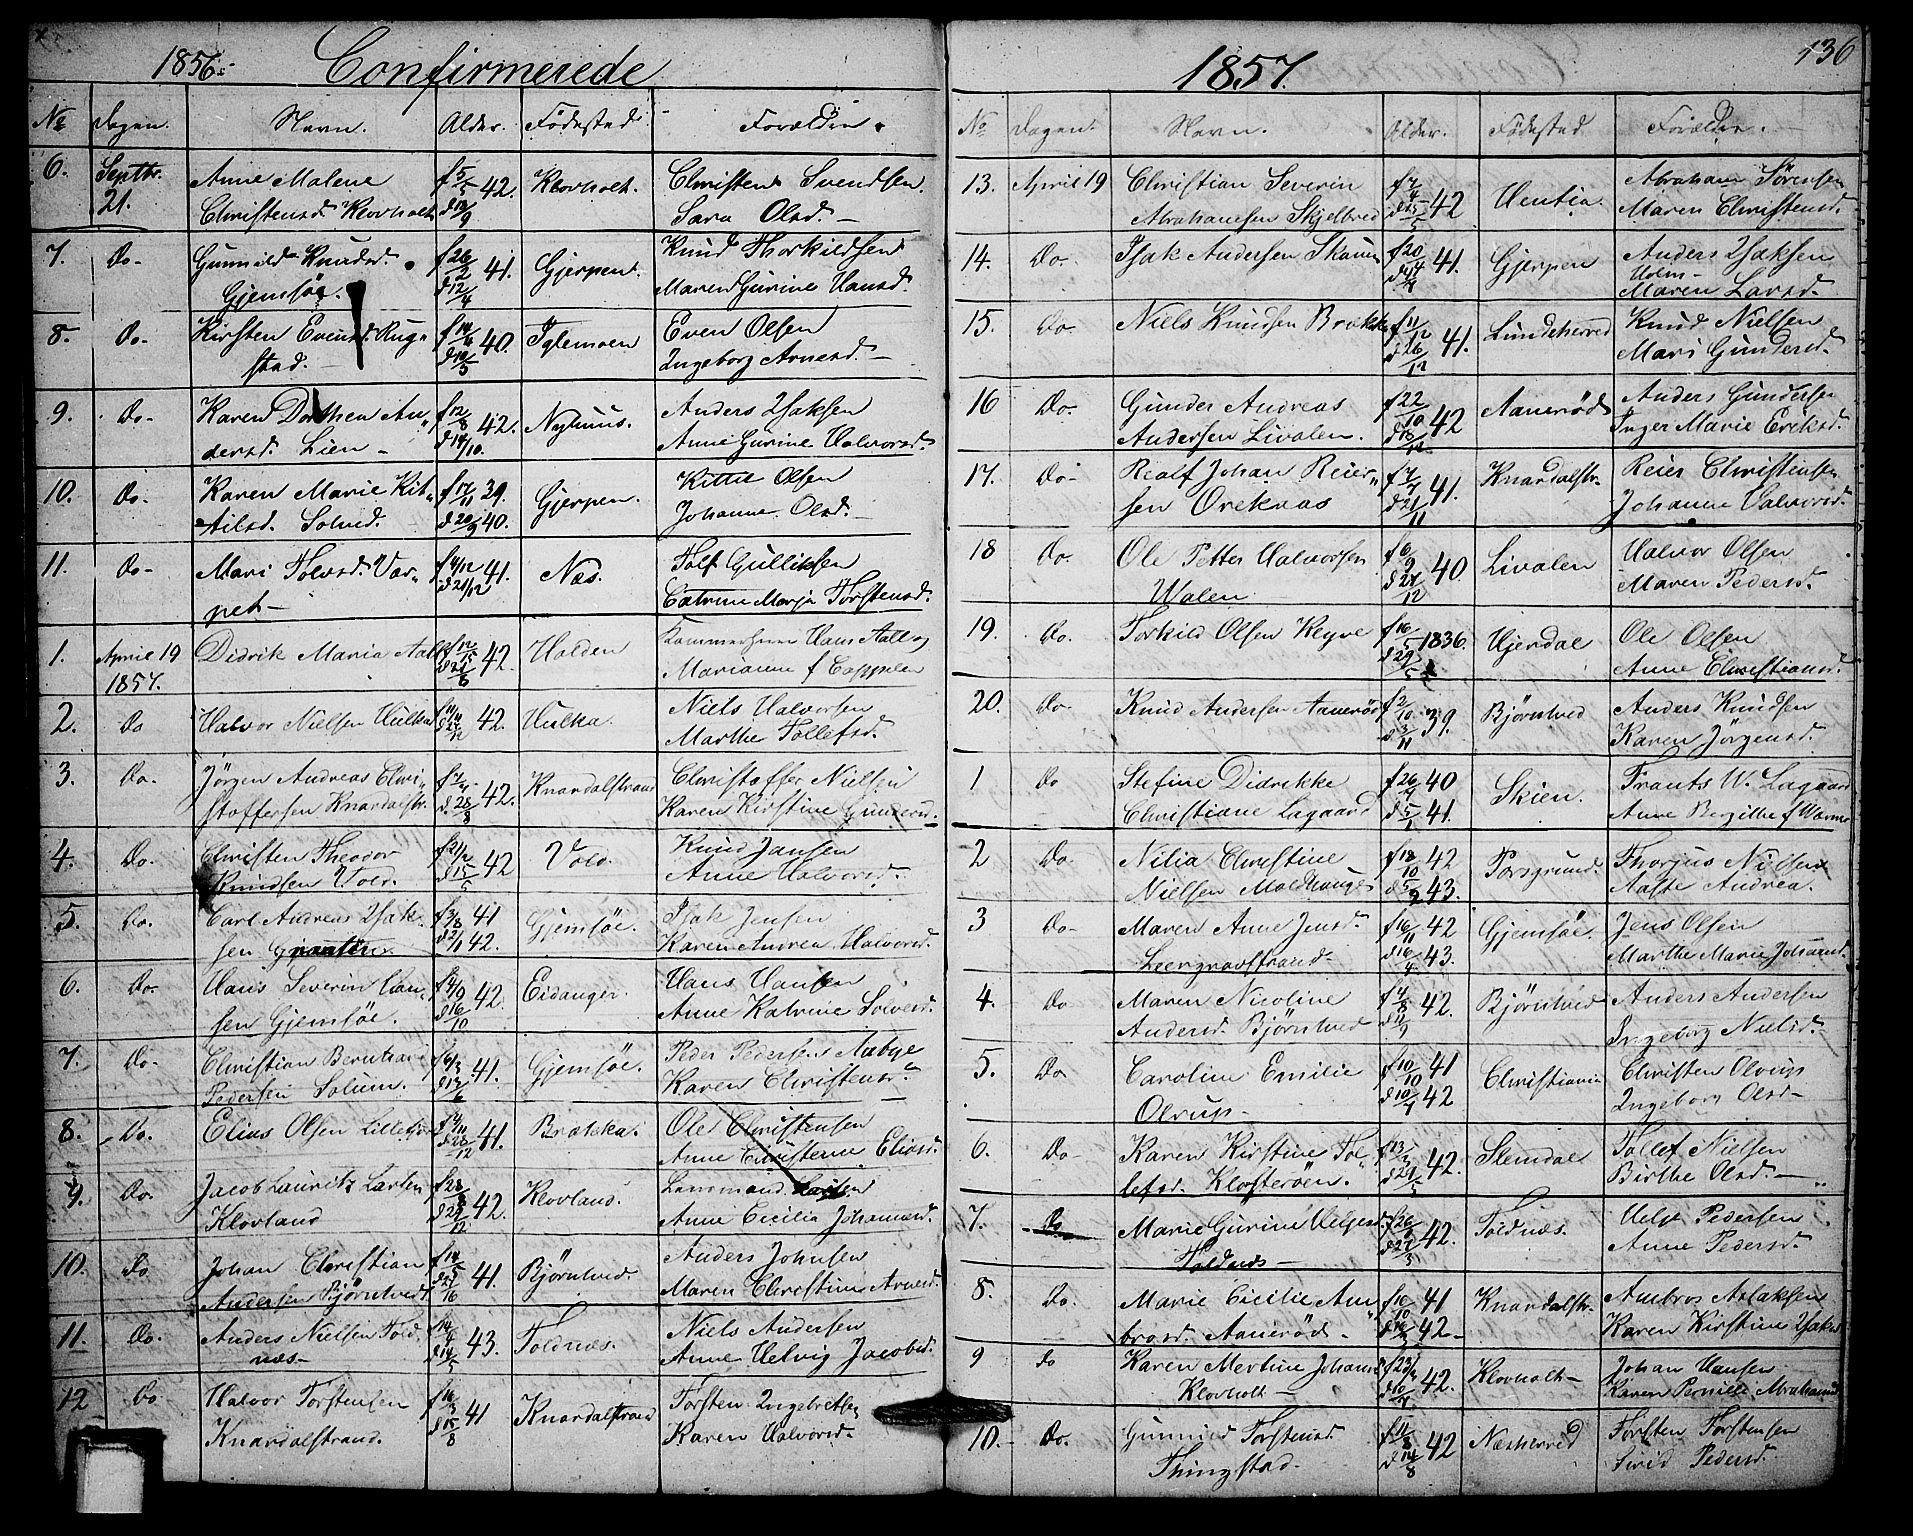 1856.
Confirmerede
No Dagen. Navn. Alder. Fødested Forældre.
6. Septbr. 21. Anne Malene f 5/5 42. Klovholt. Christen Svendsen
Christensd Klovholt d 18/9 Sara Olsd. —
7. Do- Gunnild Knudsd. f 26/2 41. Gjerpen. Knud Thorkildsen
Gjemsøe. d 12/4 Maren Gurine Hansd.
8. Do- Kirsten Evensd. Rug- 40. Iglemoen Even Olsen
stad. — Ingeborg Arnesd. —
9. Do- Karen Dorthea An- f 12/8 42. Nyhuus. Anders Isaksen
dersd. Lien — d 19/10. Anne Gurine Halvorsd.
10. Do- Karen Marie Kit- f 17/11 39. Gjerpen. Kittil Olsen
tilsd. Solvd. d 20/9 40. Johanne Olsd. —
11. Do- Mari Tolvsd. Var- f 4/12 41. Næs. Tolf Gulliksen
net — d 21/12 Catrine Marja Torstensd.
1. April 19 1857. Didrik Maria Aall 42. Holden Kammerherre Hans Aall og
Marianne f Cappelen
2. Do Halvor Nielsen Hulka 42. Hulka. Niels Halvorsen
Marthe Tollefsd.
3. Do. Jørgen Andreas Chri- 42. Knardalstrand Christoffer Nielsen
stoffersen Knardalstr. d. 28/8 Karen Kirstine Gundersd.
4. Do. Christen Theodor f 21/2 42 Vold. Knud Jansen
Knudsen Vold. d 15/5 Anne Halvorsd.
5. Do. Carl Andreas Isak- f 3/8 41 Gjemsøe. Isak Jensen
sen d 2/1 42. Karen Andrea Halvorsd.
6. Do- Hans Severin Han- f 4/9 42. Eidanger. Hans Hansen
sen Gjemsøe. d 16/10 Anne Katrine Solvesd.
7. Do- Christian Bernhar f 6/3 41. Gjemsøe. Peder Pedersen Aabye
Pedersen Solum. d 13/6 Karen Christensd.
8. Do. Elias Olsen Lillefjære 41. Brætka. Ole Christensen
Anne Christine Eliasd.
9. Do. Jacob Lauritz Larsen 42. Klovland. Lensmand Larsen
Klovland Anne Cicilia Johannesd.
10. Do Johan Christian 41. Bjørntved. Anders Johnsen
Andersen Bjørntvedt Maren Christine Arnesd.
11. Do. Anders Nielsen Told- 43. Toldnæs. Niels Andersen
næs — d 14/5 Anne Helvig Jacobsd.
12 Do Halvor Torstensen f 16/3 41 Knardalstrand Torsten Ingebretsen
Knardalstrand. d 15/8 Karen Halvorsd.
1857.
136
No Dagen. Navn. Alder. Fødested Forældre.
13. April 19 Christian Severin f 7/4 42 Ventia. Abraham Sørensen
Abrahamsen Skjelbred d 25/5 Maren Christensd.
14. Do. Isak Andersen Skaum 41. Gjerpen Anders Isaksen
Holm
Maren Larsd.
15. Do. Niels Knudsen Brække f 11/12 41. Lundeherred Knud Nielsen
d 26/12 Mari Gundersd.
16 Do- Gunder Andreas f 22/10 42 Aanerød Anders Gundersen
Andersen Livalen. d 18/12 Inger Marie Eriksd.
17. Do- Realf Johan Reier- f 7/7 41. Knardalstr. Reier Christensen
sen Oreknas d 21/11 Johanne Halvorsd.
18 Do. Ole Petter Halvorsen f 6/9 40 Livalen Halvor Olsen
Walen d 27/12 Maren Pedersd.
19. Do. Torkild Olsen Reyve f 16/5 1836. Hjerdal Ole Olsen
Anne Christiansd.
20. Do. Knud Andersen Aanerød f 2/10 39. Bjørntved Anders Knudsen
d 3/11 Karen Jørgensd.
1 Do Stefine Didrikke 40 Skien. Frants W. Lagaard
Christiane Lagaard 41. Anne Bergithe f Warme
2 Do. Nilia Christine f 18/10 42 Porsgrund. Thorjus Nielsen
Nielsen Moldhaugs d 5/2 43. Aaste Andrea.
3 Do. Maren Anne Jensd. f 16/11 42 Gjemsøe. Jens Olsen
Leergravstrand. d 16/4 43. Marthe Marie Johannd.
4. Do Maren Nicoline f 4/8 42. Bjørntved Anders Andersen
Andersd. Bjørntved d 11/9 Ingeborg Nielsd.
5. Do Caroline Emilie f 10/10 41 Christiania Christen Olrup
Olrup — d 10/7 42 Ingeborg Olsd —
6. Do- Karen Kirstine Tol- 42. Slemdal Tollef Nielsen
lefsd. Klosterøen. d 29/5 Birthe Olsd. —
7. Do Marie Gurine Helgesd. 42. Toldnæs. Helge Pedersen
Toldnæs — d 27/3 Anne Pedersd.
8. Do. Marie Cicilie Am f 10/10 41 Knardalstr. Ambros Aslaksen
brosd. Aanerød — 42 — Karen Kirstine Isaksd
9 Do Karen Mertine Johansd 42. Klovholt — Johan Hansen
Klovholt — Karen Pernille Abrahamsd
10. Do. Gunnild Torstensd. f 11/8 42 Næsherred Torsten Torstensen
Thingstad. d 14/8 Sirid Pedersd.